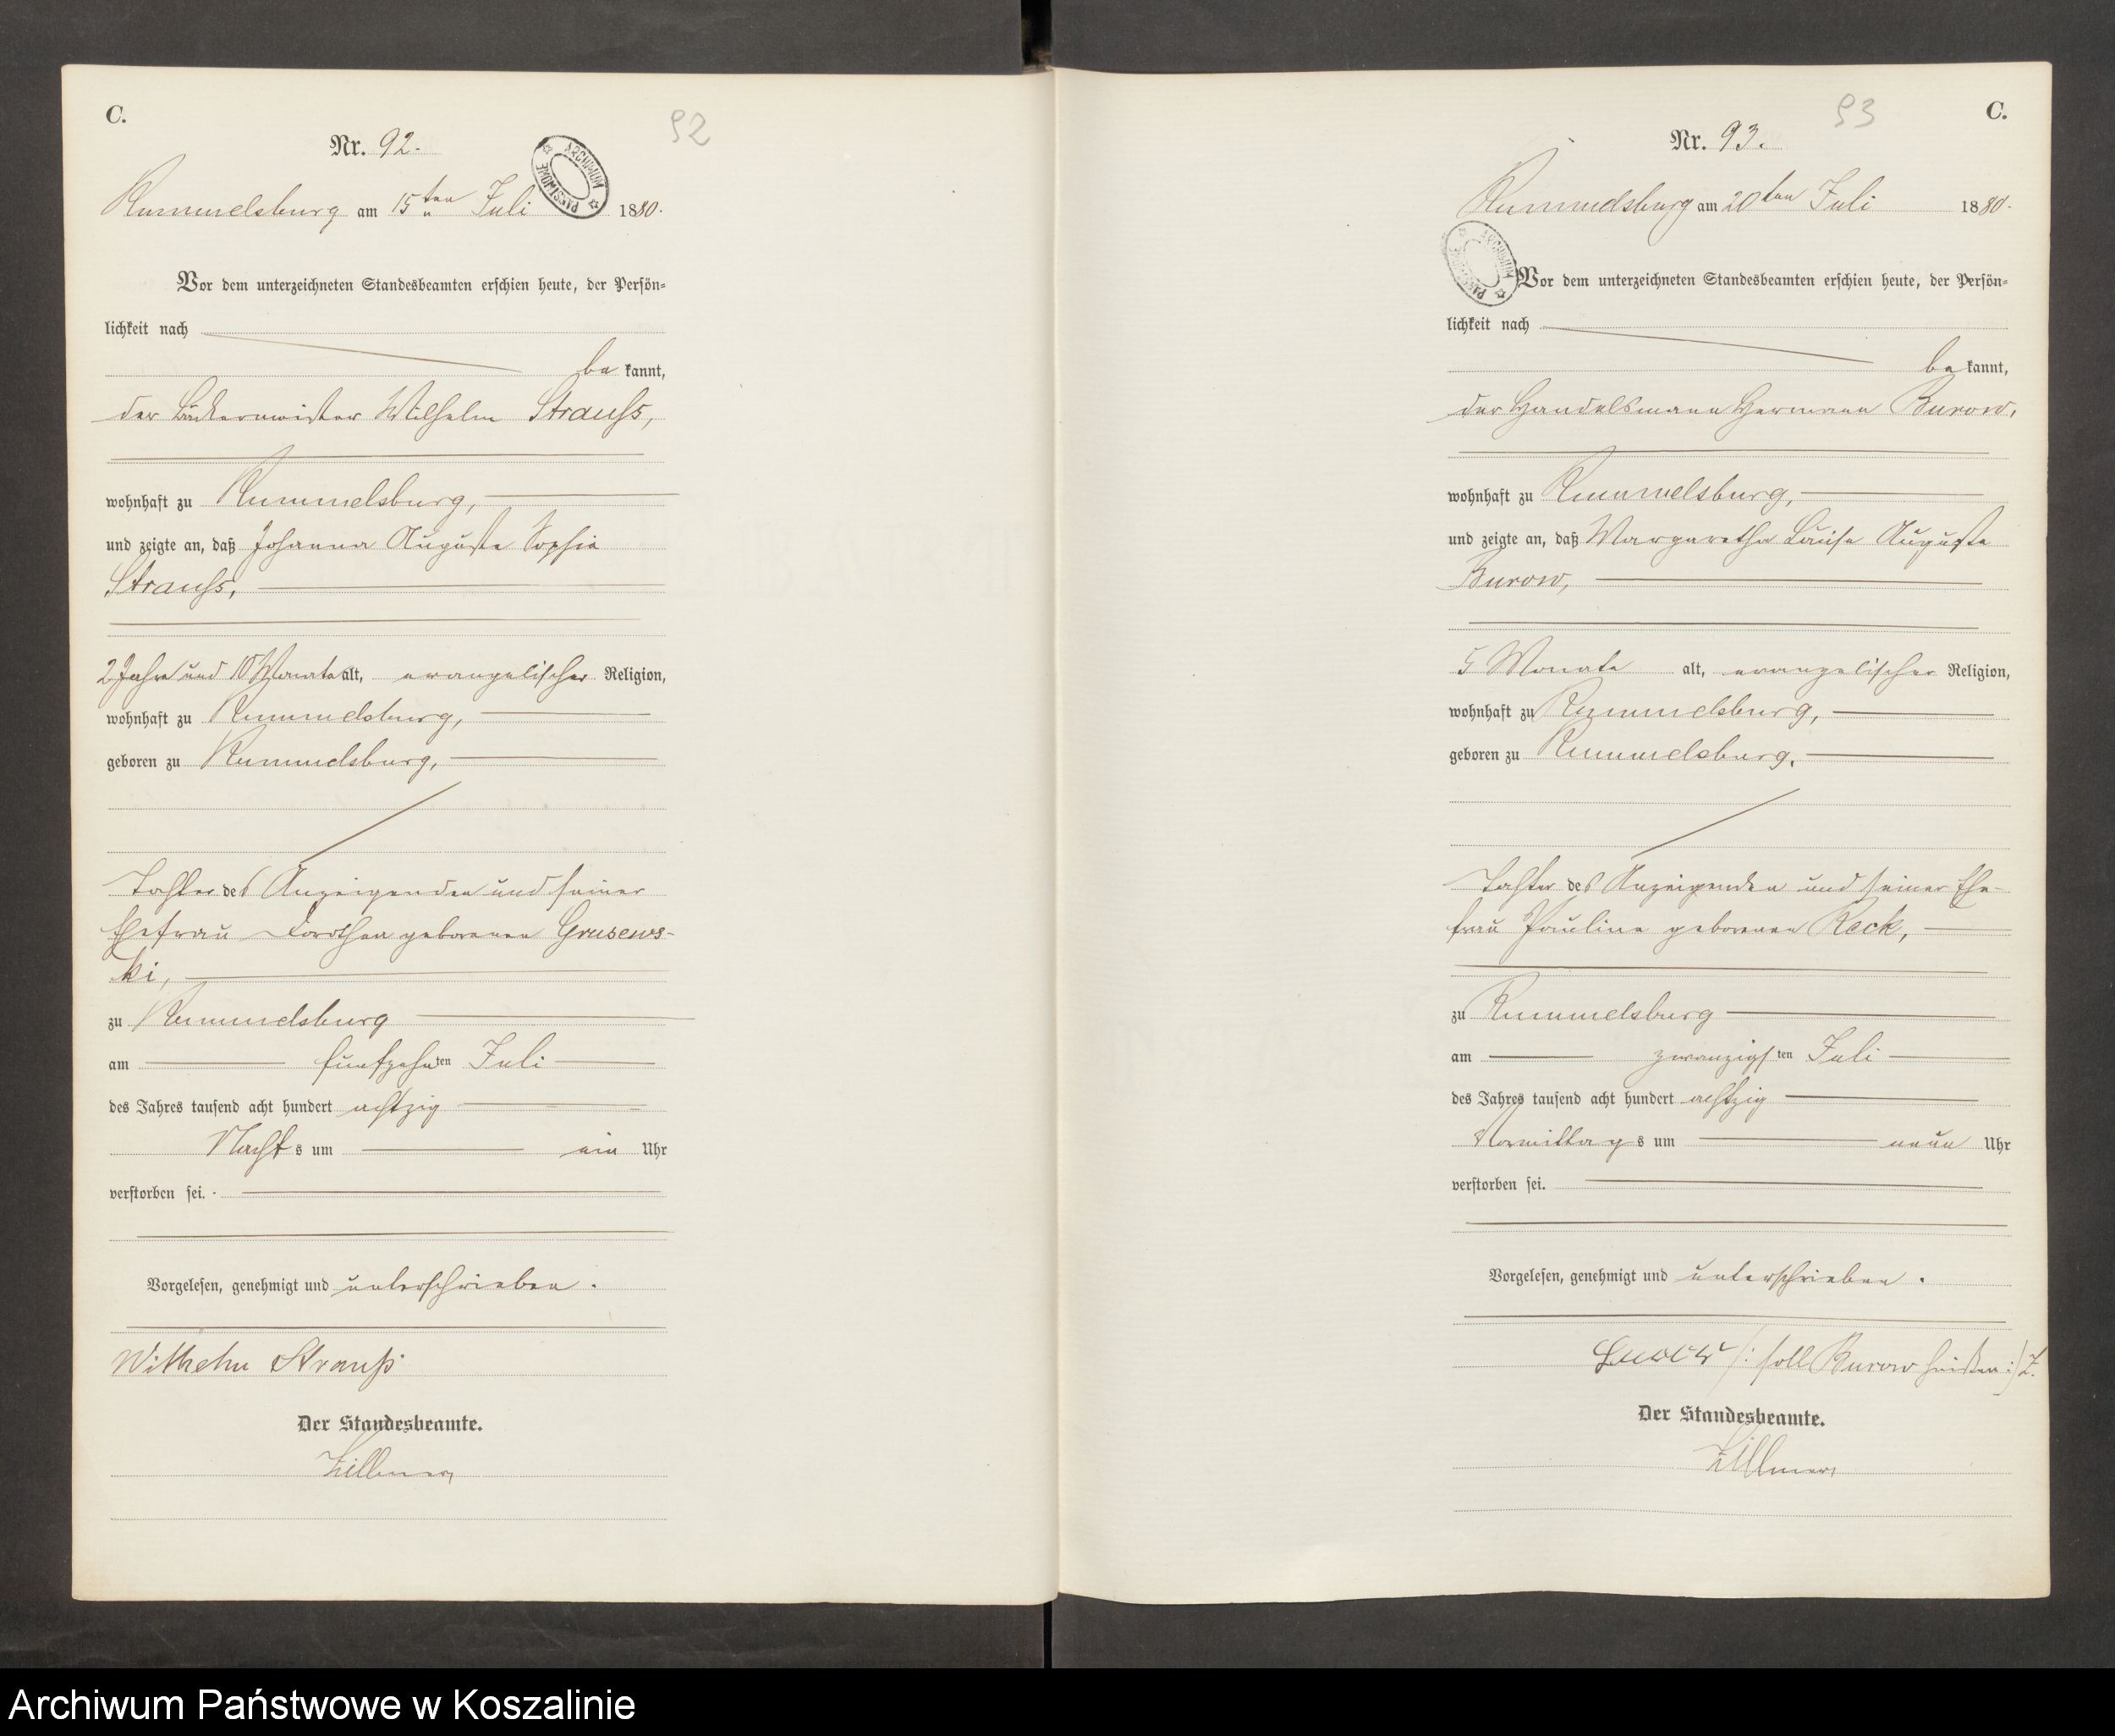 C.
92
Nr. 92.
ARCHIWUM PAŃSTWOWE
Rummelsburg am 15ten Juli 1880.
Vor dem unterzeichneten Standesbeamten erschien heute, der Persön-
lichkeit nach
bekannt,
der Bäckermeister Wilhelm Strauss,
wohnhaft zu Rummelsburg,
und zeigte an, daß Johanna Auguste Sophie
Strauss,
2 Jahre und 10 Monate alt, evangelischer Religion,
wohnhaft zu Rummelsburg,
geboren zu Rummelsburg,
Tochter des Anzeigenden und seiner
Ehefrau Dorothea geborenen Grusews-
ki,
zu Rummelsburg
am fünfzehnten Juli
des Jahres tausend acht hundert achtzig
Nachts um ein Uhr
verstorben sei.
Vorgelesen, genehmigt und unterschrieben.
Wilhelm Strauß
Der Standesbeamte.
Zillmer
C.
93
Nr. 93.
Rummelsburg am 20ten Juli 1880.
ARCHIWUM PAŃSTWOWE
Vor dem unterzeichneten Standesbeamten erschien heute, der Persön-
lichkeit nach
bekannt,
der Handelsmann Hermann Burow,
wohnhaft zu Rummelsburg,
und zeigte an, daß Margarethe Louise Auguste
Burow,
5 Monate alt, evangelischer Religion,
wohnhaft zu Rummelsburg,
geboren zu Rummelsburg,
Tochter des Anzeigenden und seiner Ehe-
frau Pauline geborenen Reck,
zu Rummelsburg
am zwanzigsten Juli
des Jahres tausend acht hundert achtzig
Vormittags um neun Uhr
verstorben sei.
Vorgelesen, genehmigt und unterschrieben.
/: soll Burow heißen :/ Z.
Der Standesbeamte.
Zillmer
Archiwum Państwowe w Koszalinie